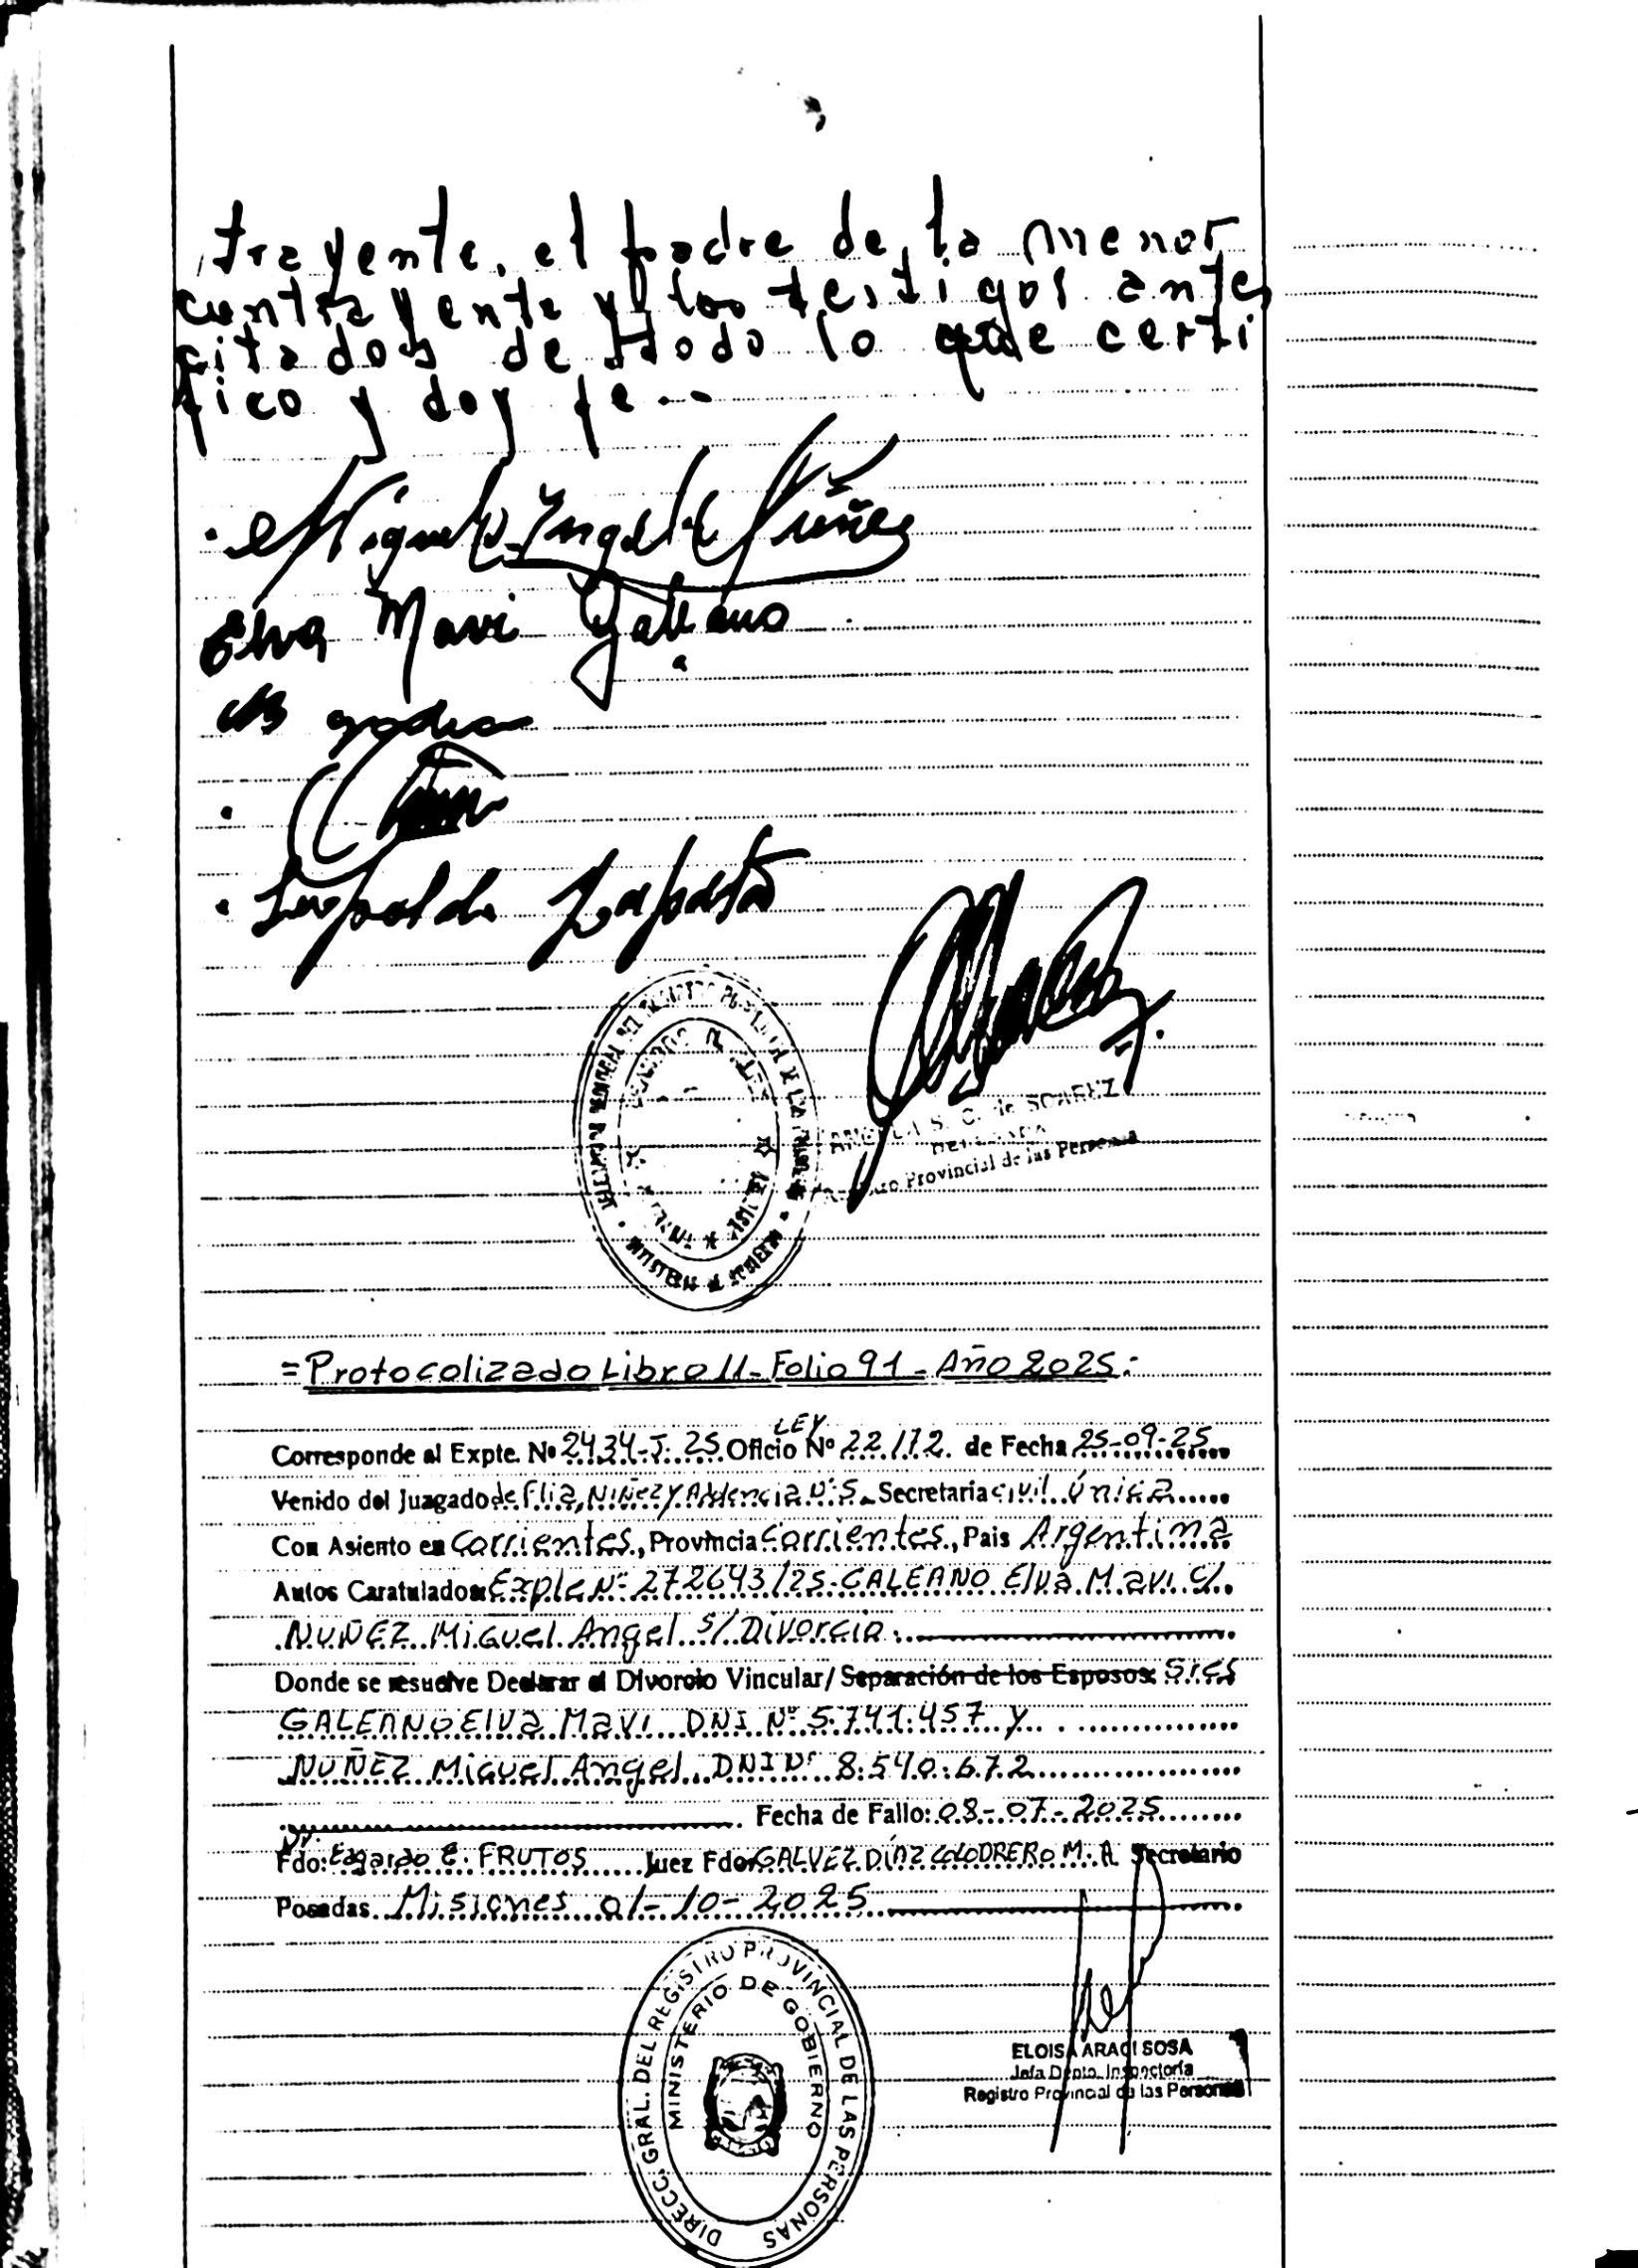 trayente, el padre de la menor
contrayente y los testigos antes
citados de todo lo que certi
fico y doy fe.--
Miguel Angel Núñez
Elva Mavi Galeano
Leopoldo Zapata
SUAREZ
Provincial de las Personas
=Protocolizado Libro 11- Folio 91 - Año 2025:
LEY
Corresponde al Expte. Nº 2434-J-25 Oficio Nº 22.172. de Fecha 25-09-25
Venido del Juagado de Flia, Niñez y Adolencia Nº 5 - Secretaria civil única
Con Asiento en Corrientes, Provincia Corrientes, Pais Argentina
Autos Caratulados: Expte Nº 272643/25-GALEANO Elva Mavi C/.
NUÑEZ Miguel Angel S/ Divorcio.
Donde se resuelve Declarar el Divorcio Vincular/ Separación de los Esposos: Sres
GALEANO Elva Mavi DNI Nº 5.741.457 y
NUÑEZ Miguel Angel DNI Nº 8.540.672
Fecha de Fallo: 08-07-2025
Fdo: Dr. Edgardo E. FRUTOS Juez Fdo: GALVEZ DÍAZ COLODRERO M. A. Secretario
Posadas Misiones 01-10-2025
DIRECC. GRAL. DEL REGISTRO PROVINCIAL DE LAS PERSONAS
MINISTERIO DE GOBIERNO
ELOISA ARACI SOSA
Jefa Dpto. Inspectoría
Registro Provincial de las Personas